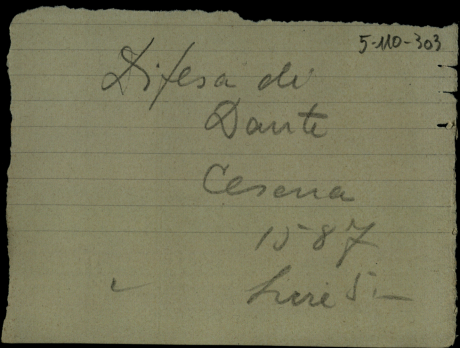 5-110-303
Difesa di
Dante
Cesena
1587
Lire 5.—